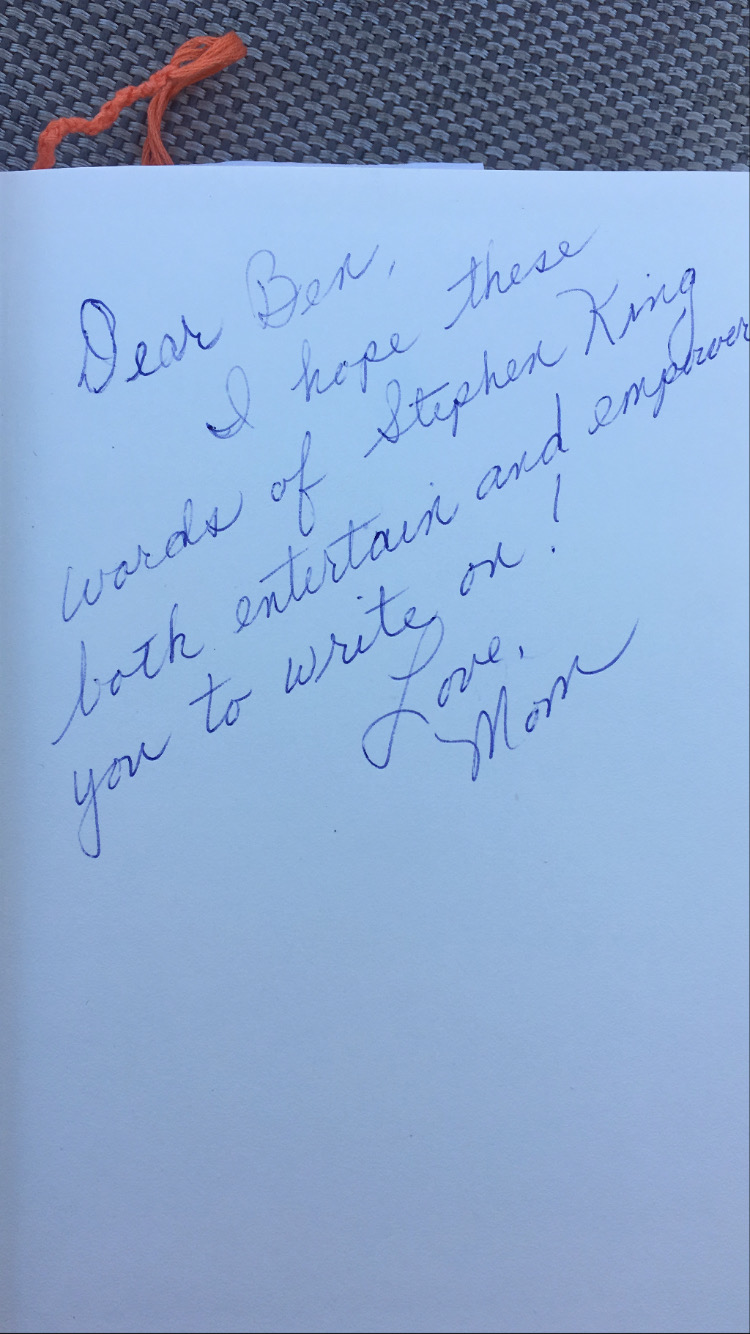 Dear Ben,
I hope these
words of Stephen King
both entertain and empower
you to write on!
Love,
Mom